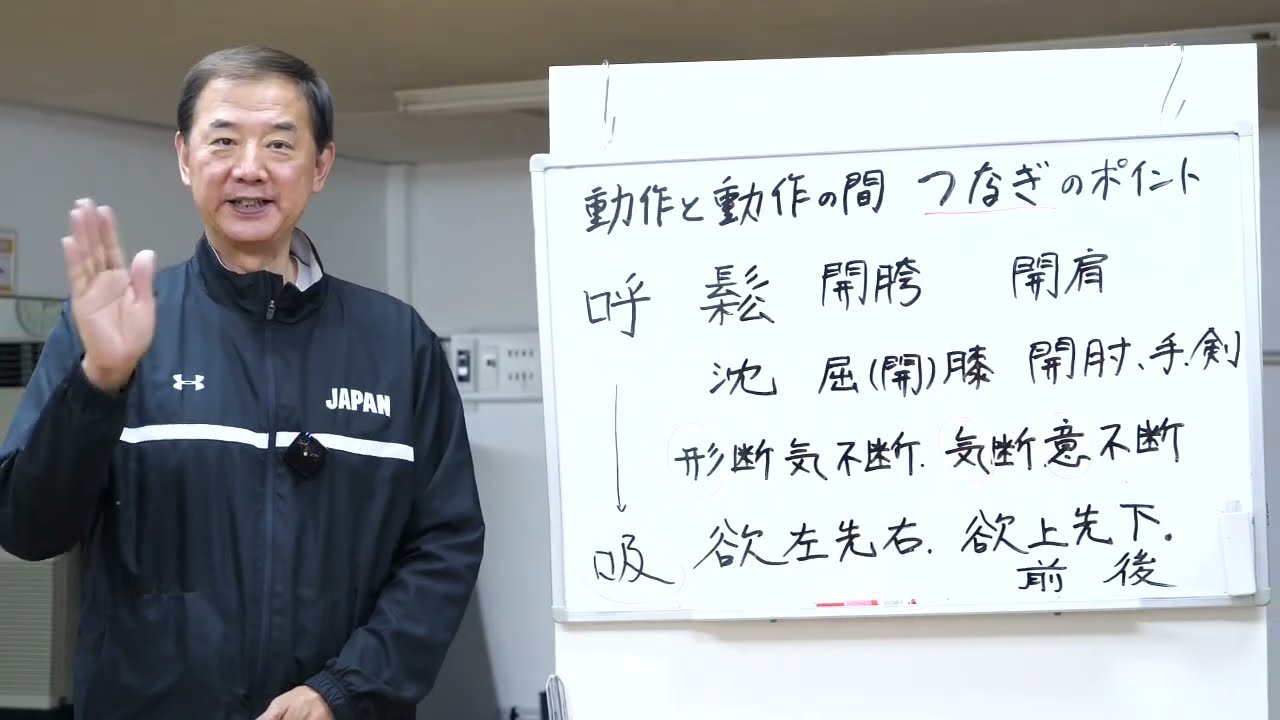 動作と動作の間 つなぎのポイント
呼 鬆 開胯 開肩
沈 屈(開)膝 開肘、手、剣
形断気不断. 気断意不断
吸 欲左先右. 欲上先下。
前 後
JAPAN